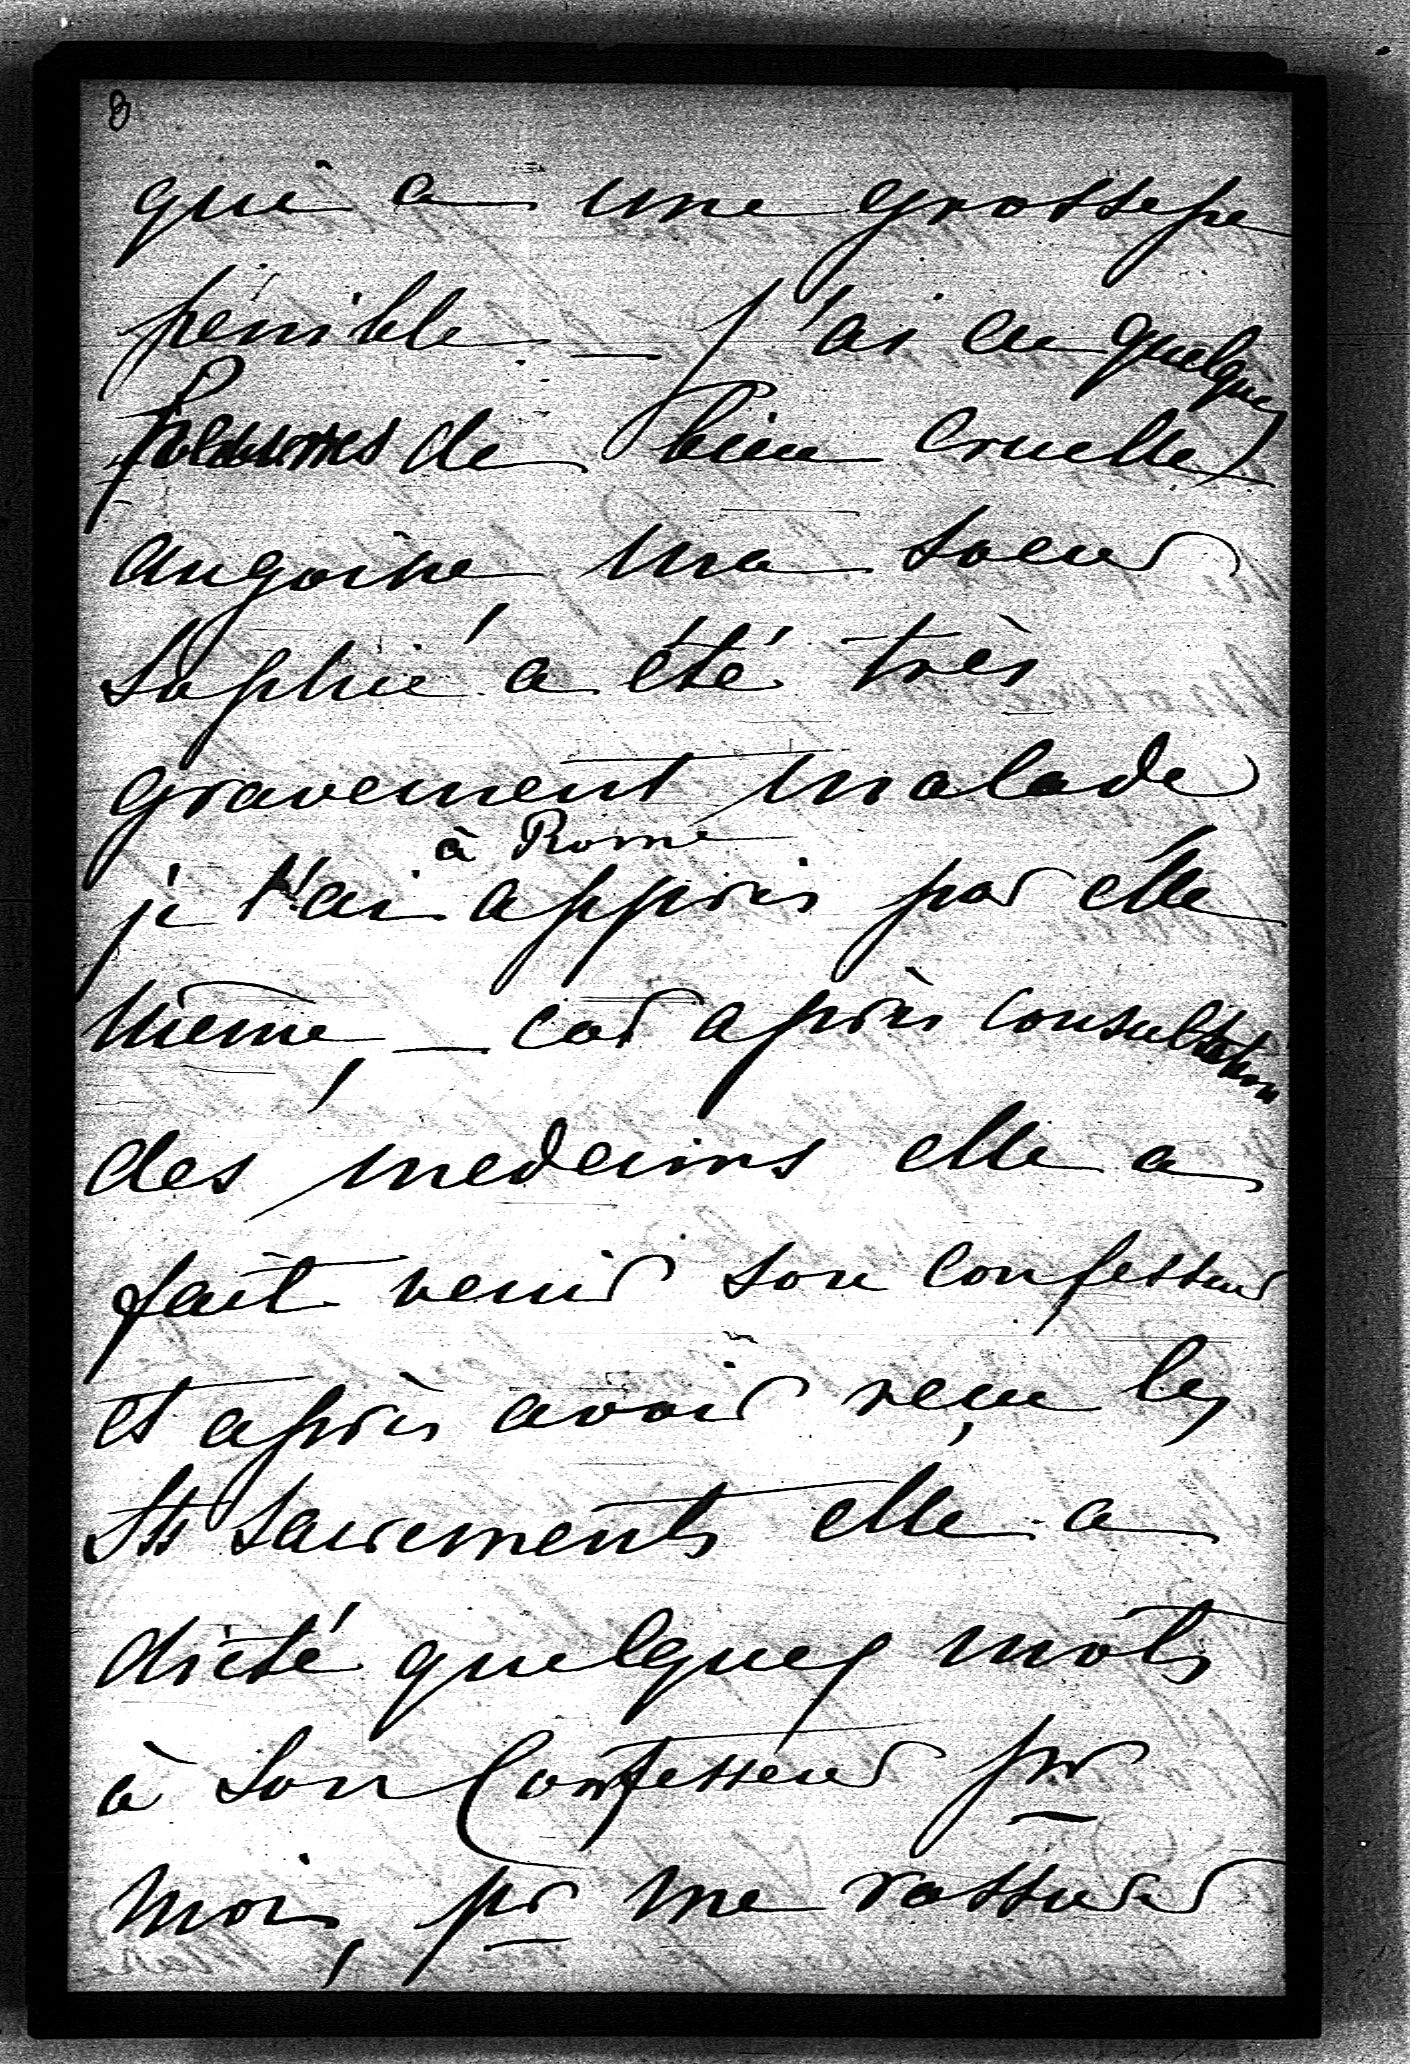 8
qui a une grossesse
pénible – j'ai eu quelques
de bien cruelle
angoisse ma soeur
Sophie a été très
gravement malade
à Rome
je l'ai appris par elle
même, – car après consultation
des medecins elle a
fait venir son confesseur
et après avoir reçu les
Sts Sacrements elle a
dicté quelques mots
à son Confesseur pr
moi, pr me rassurer